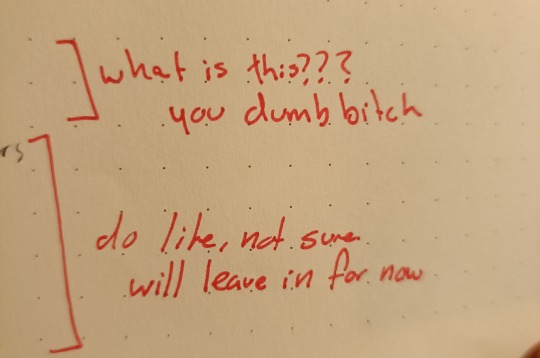 what is this???
you dumb bitch
rs
do like, not sure
will leave in for now